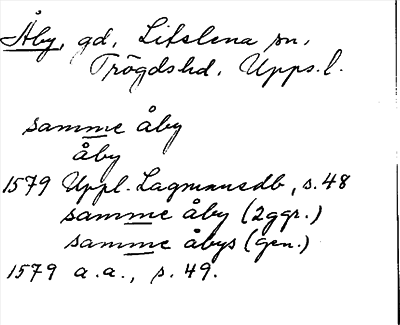 Åby, gd, Litslena sn,
Trögds hd. Upps. l.
samme åby
åby
1579 Uppl. Lagmansdb, s. 48
samme åby (2 ggr.)
samme åbys (gen.)
1579 a.a., s. 49.